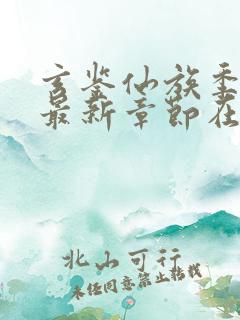 玄鉴仙族季
最新章节在
北山可行
未经同意禁止转载